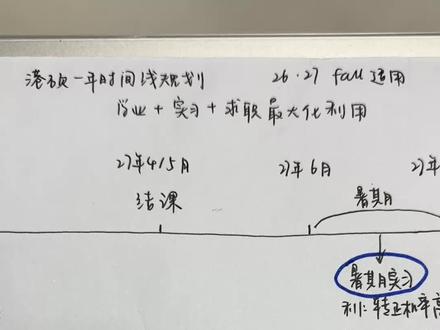 港硕一年时间线规划 26·27 fall 适用
学业 + 实习 + 求职最大化利用
27年4/5月 27年6月 27年
结课 暑期
暑期实习
利: 转正机率高